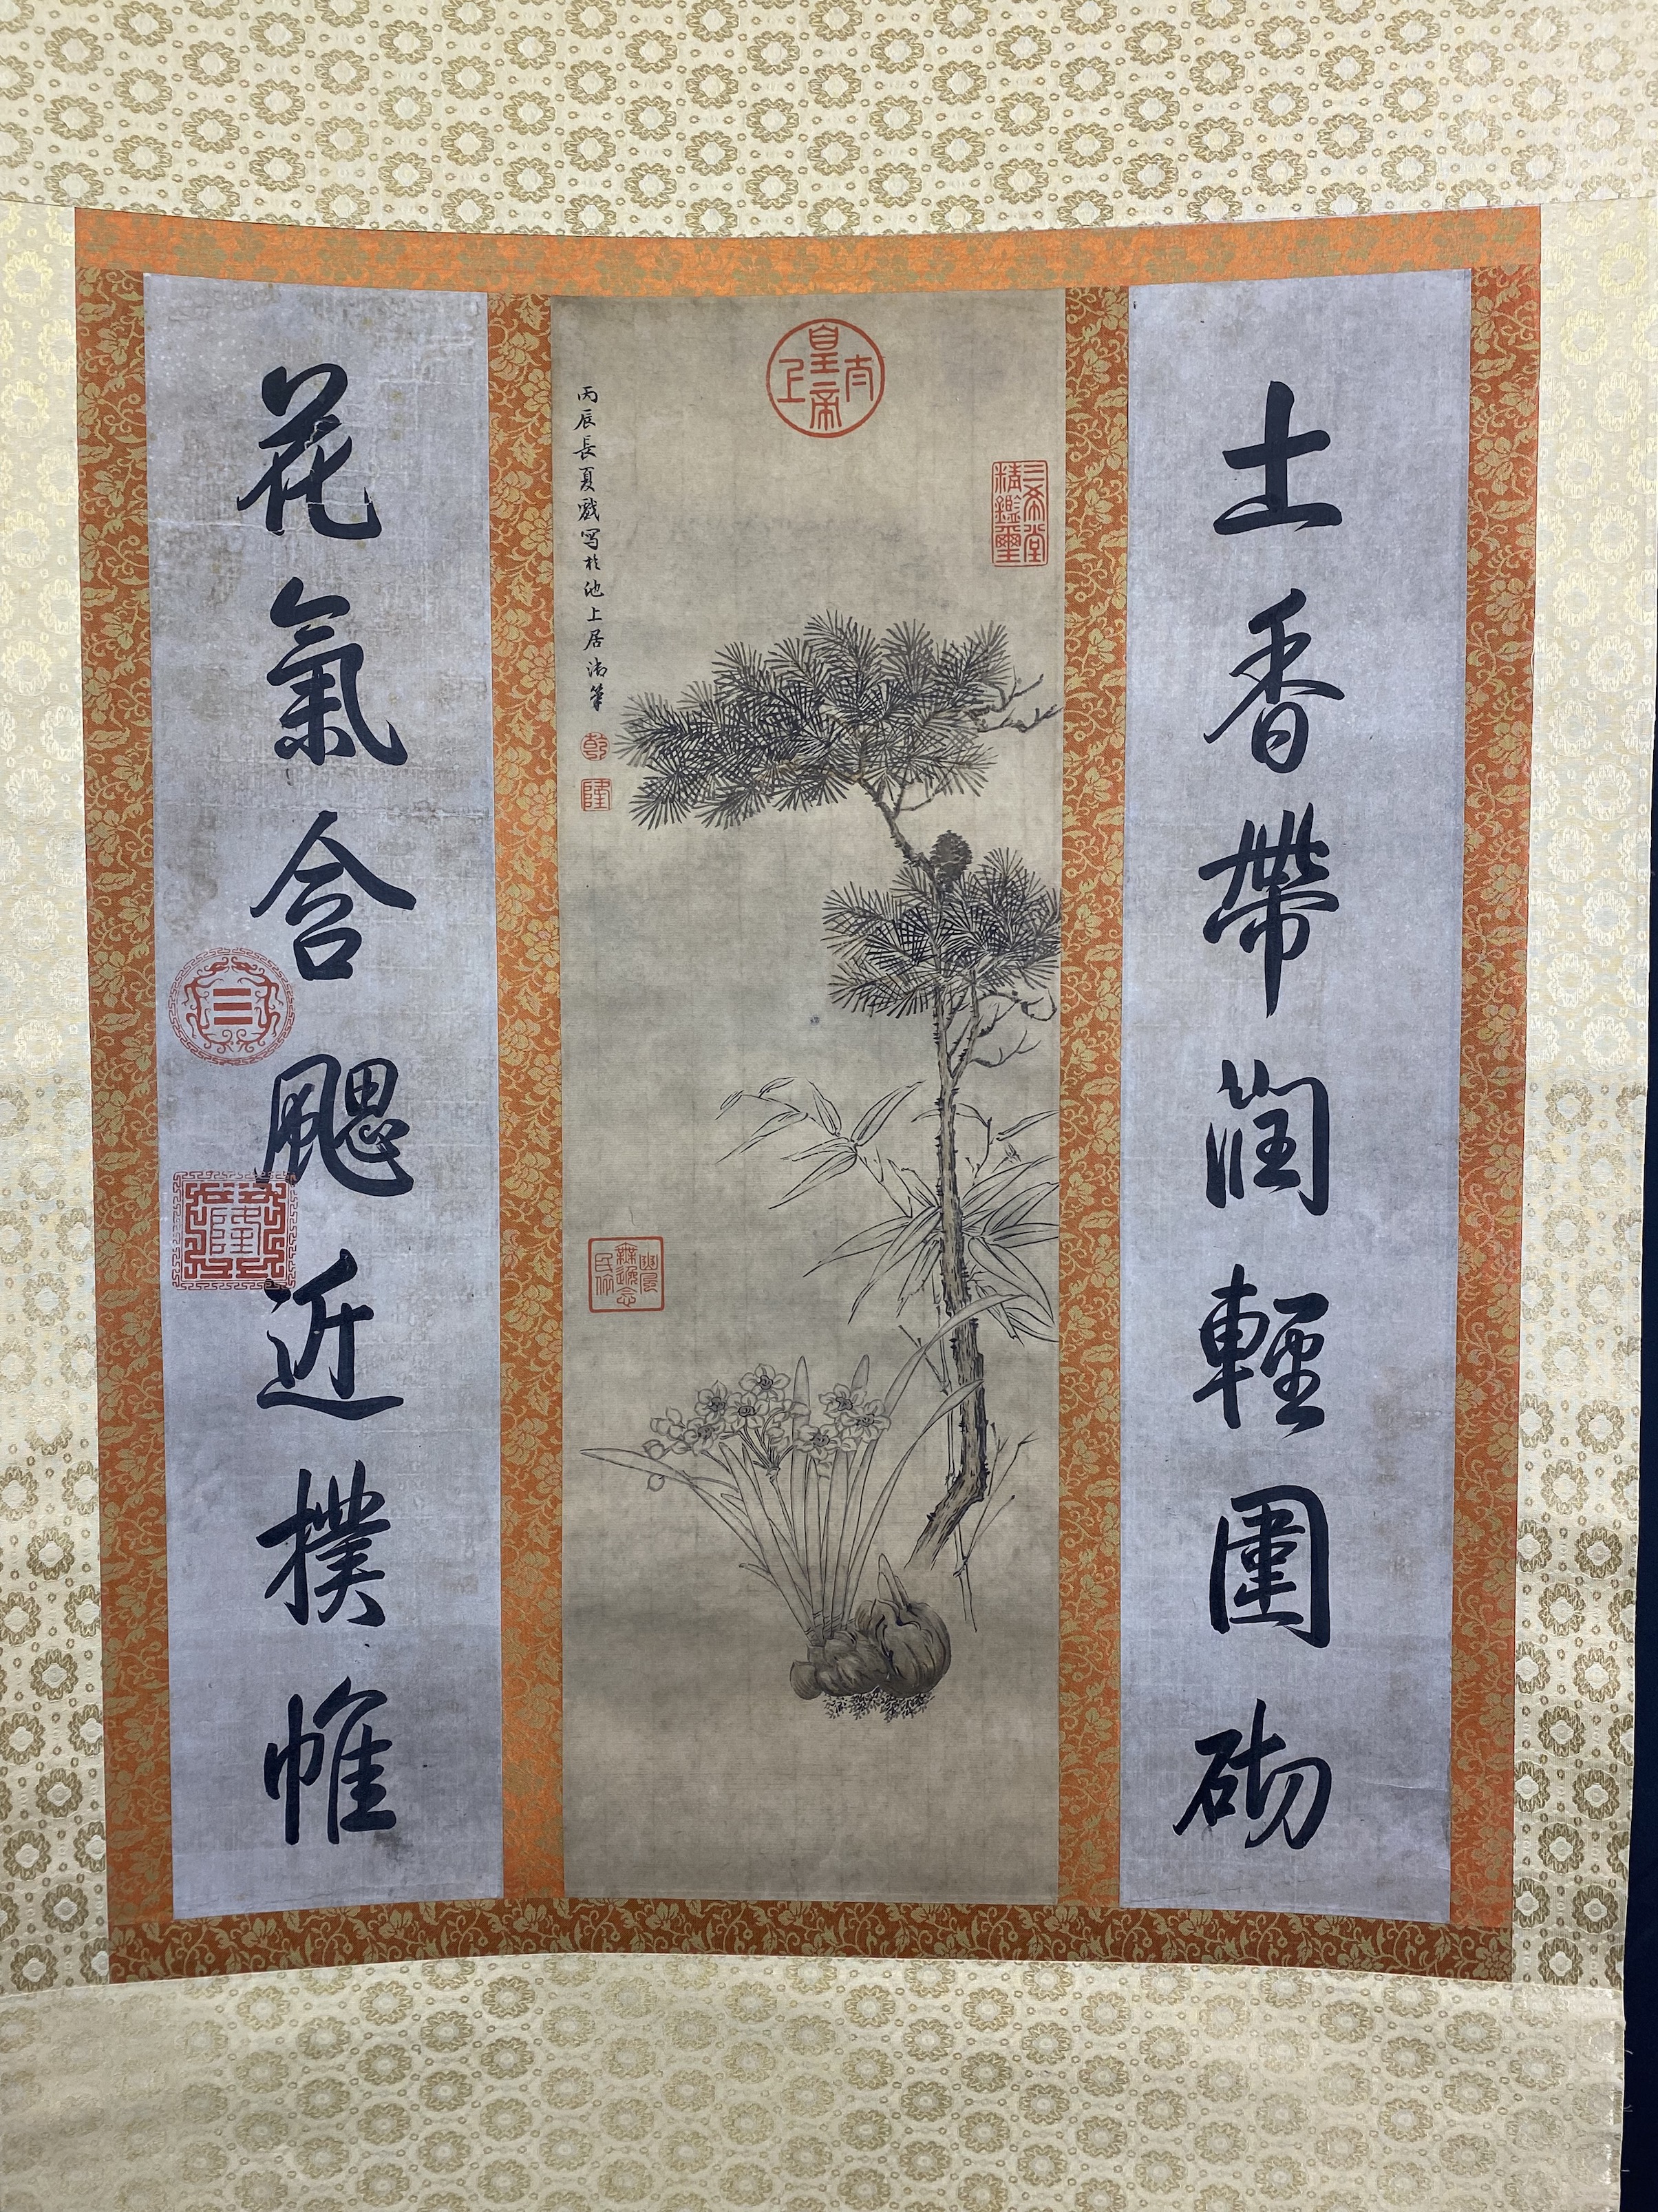 土香帶潤輕圍砌
太上皇帝
三希堂
精鑑璽
丙辰長夏戲寫於池上居御筆
乾
隆
花氣含颸近撲帷